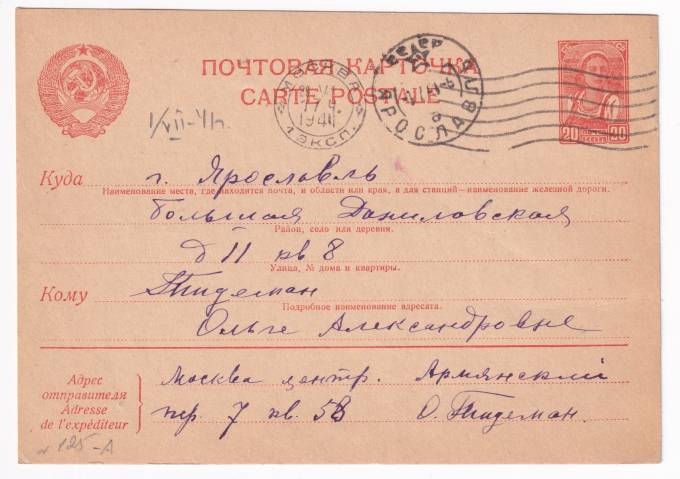 ПОЧТОВАЯ КАРТОЧКА
CARTE POSTALE
МОСКВА
17
1941
1 ЭКСП.
ЯРОСЛАВЛЬ
20 20
1/VII-41г.
Куда г. Ярославль
Наименование места, где находится почта, и области или края, а для станций—наименование железной дороги.
Большая Даниловская
Район, село или деревня.
д 11 кв 8
Улица, № дома и квартиры.
Кому Тидеман
Подробное наименование адресата.
Ольге Александровне
Адрес отправителя
Adresse de l'expéditeur
Москва центр. Армянский
пер. 7 кв. 58 О. Тидеман.
125-А